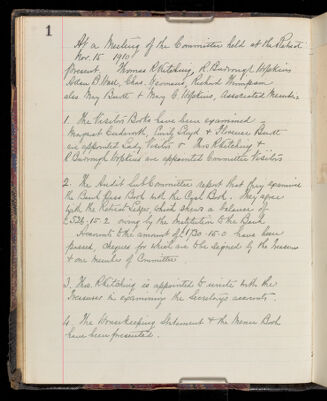 1
At a Meeting of the Committee held at the Retreat
Nov. 15 1910
Present, Thomas R Kitching, R. Burrough Hopkins
Richard Thompson
also Mary Burtt & Mary C. Hopkins, Associated Members
1. The Visitor Books have been examined –
Margaret Cudworth, Emily Lloyd & Florence Burtt
are appointed Lady Visitors & Thos R Kitching &
R Burrough Hopkins are appointed Committee Visitors
2. The Audit Sub Committee report that they examine
the Bank Pass Book with the Cash Book. They agree
with the Retreat Ledger, which shews a balance of
15. 2 owing by the Institution to the Bank
Accounts to the amount of £1130. 15. 0 have been
passed, cheques for which are to be signed by the Treasurer
& one Member of Committee.
3. Thos. R Kitching is appointed to unite with the
Treasurer in examining the Secretary's accounts.
4. The Housekeeping Statement & the Menu Book
have been presented.